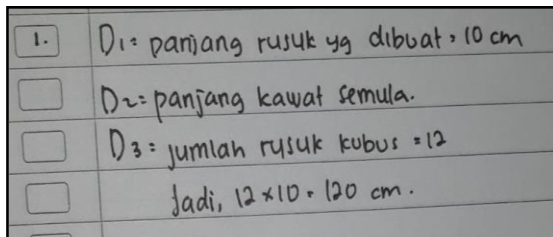 1. D1 = panjang rusuk yg dibuat = 10 cm
D2 = panjang kawat semula.
D3 = jumlah rusuk kubus = 12
Jadi, 12 x 10 = 120 cm.